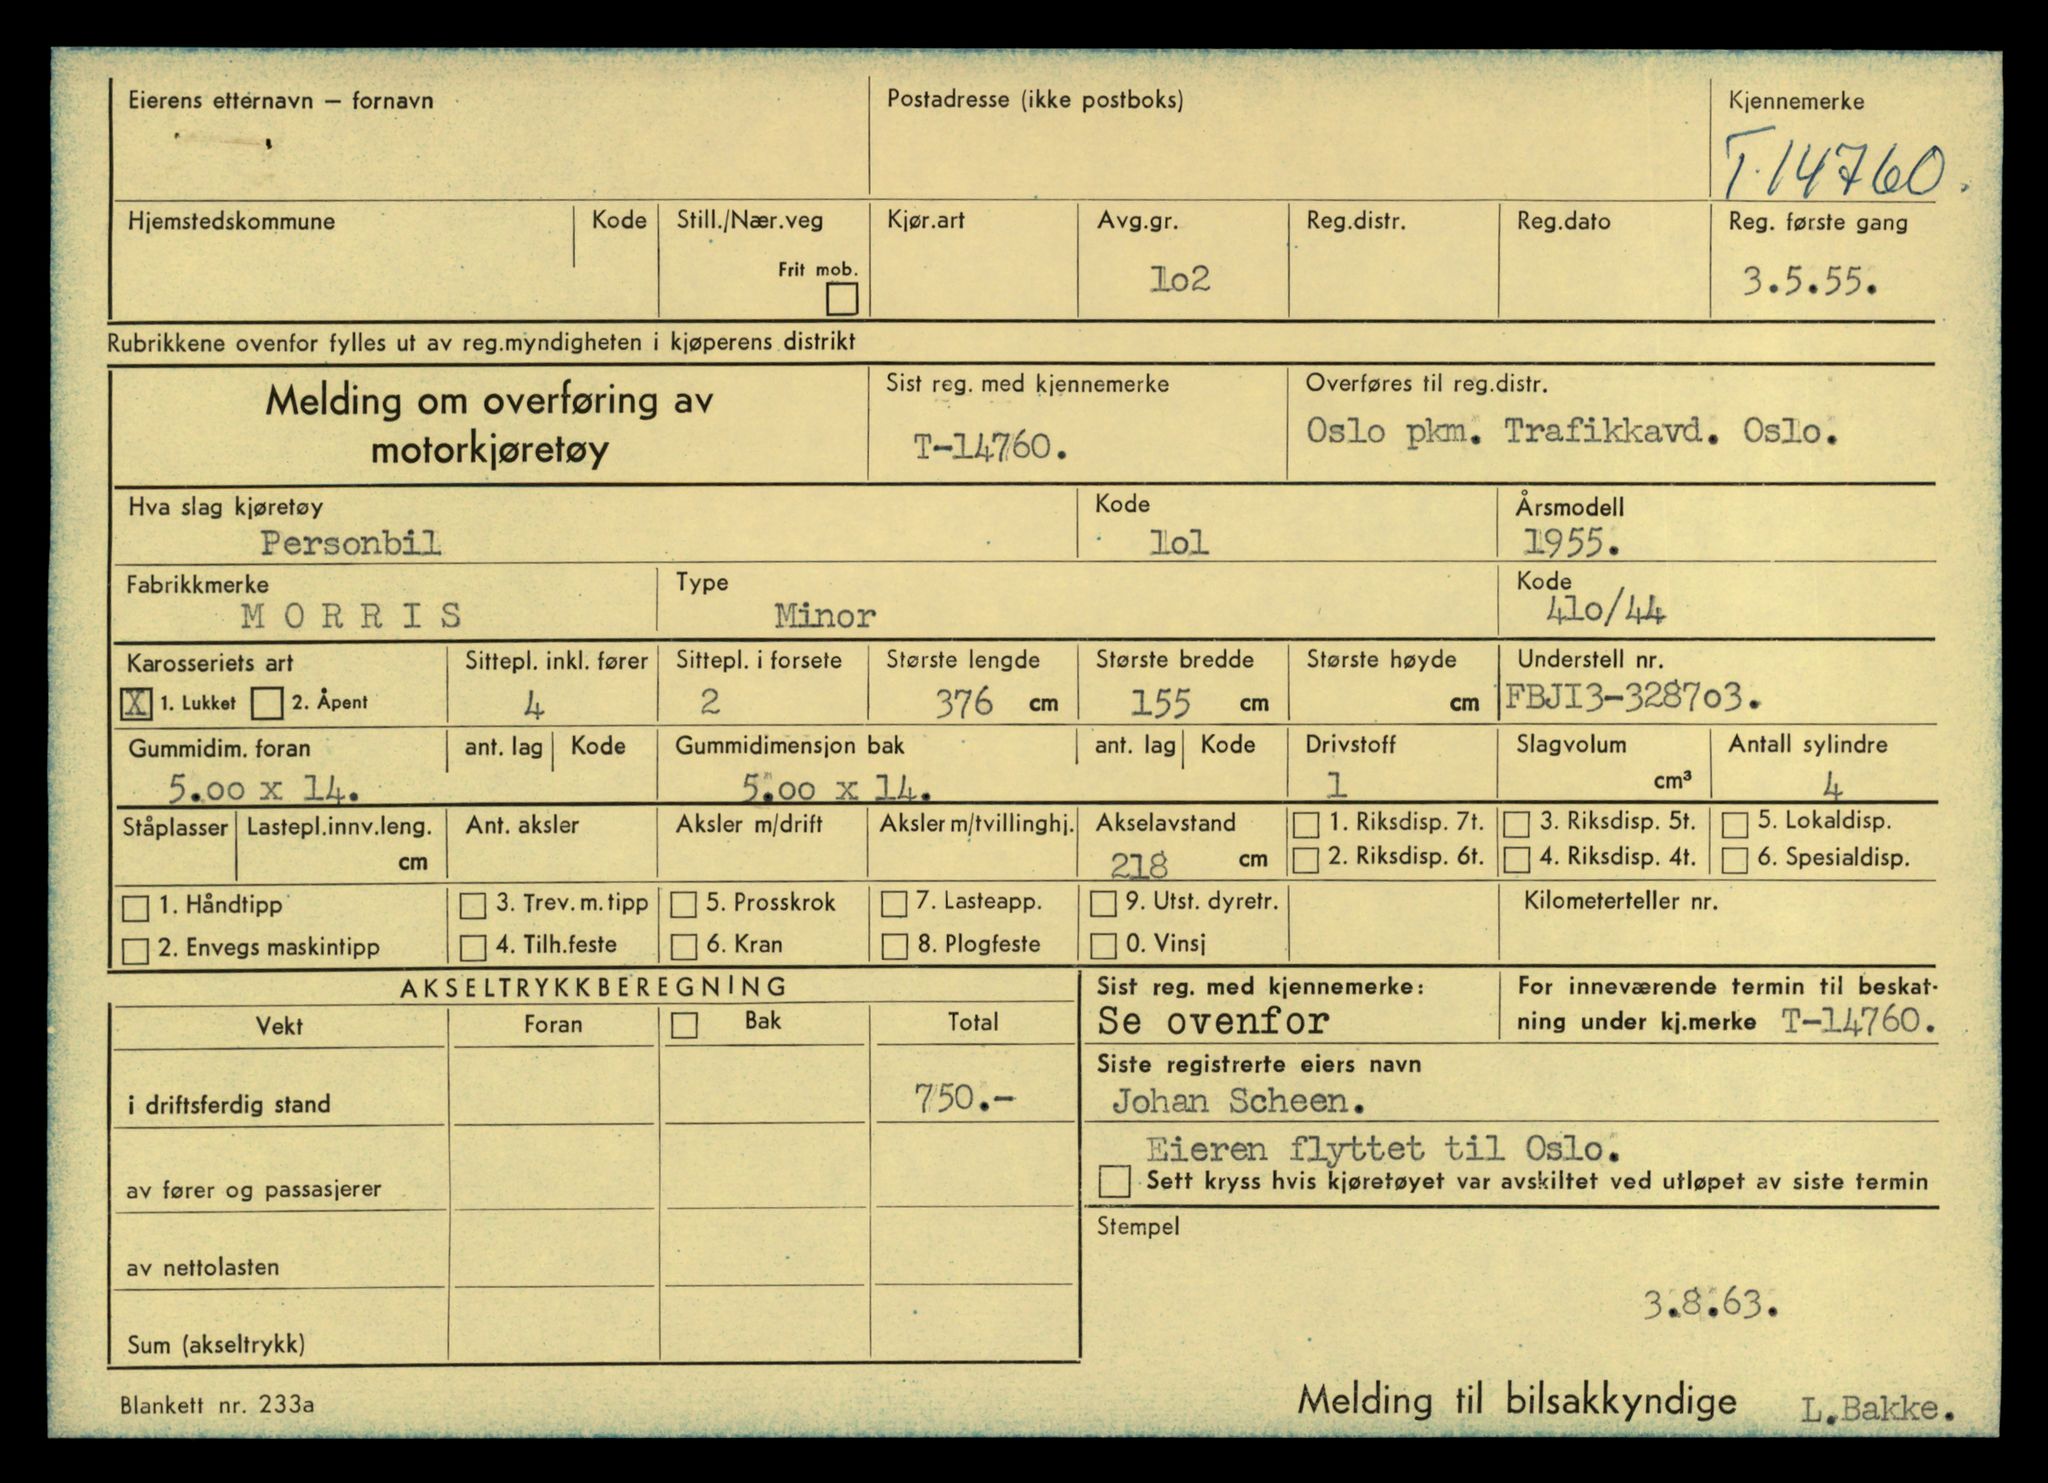 Eierens etternavn — fornavn
Postadresse (ikke postboks)
Kjennemerke
T.14760.
Hjemstedskommune
Kode
Still./Nær.veg
Frit mob.
Kjør.art
Avg.gr.
1o2
Reg.distr.
Reg.dato
Reg. første gang
3.5.55.
Rubrikkene ovenfor fylles ut av reg.myndigheten i kjøperens distrikt
Melding om overføring av
motorkjøretøy
Sist reg. med kjennemerke
T-14760.
Overføres til reg.distr.
Oslo pkm. Trafikkavd. Oslo.
Hva slag kjøretøy
Personbil
Kode
1o1
Årsmodell
1955.
Fabrikkmerke
M O R R I S
Type
Minor
Kode
41o/44
Karosseriets art
X 1. Lukket 2. Åpent
Sittepl. inkl. fører
4
Sittepl. i forsete
2
Største lengde
376 cm
Største bredde
155 cm
Største høyde
cm
Understell nr.
FBJI3-3287o3.
Gummidim. foran
5.oo x 14.
ant. lag
Kode
Gummidimensjon bak
5.oo x 14.
ant. lag
Kode
Drivstoff
1
Slagvolum
cm³
Antall sylindre
4
Ståplasser
Lastepl.innv.leng.
cm
Ant. aksler
Aksler m/drift
Aksler m/tvillinghj.
Akselavstand
218 cm
1. Riksdisp. 7t.
2. Riksdisp. 6t.
3. Riksdisp. 5t.
4. Riksdisp. 4t.
5. Lokaldisp.
6. Spesialdisp.
1. Håndtipp
2. Envegs maskintipp
3. Trev. m. tipp
4. Tilh.feste
5. Prosskrok
6. Kran
7. Lasteapp.
8. Plogfeste
9. Utst. dyretr.
0. Vinsj
Kilometerteller nr.
AKSELTRYKKBEREGNING
Vekt
Foran
Bak
Total
i driftsferdig stand
750.-
av fører og passasjerer
av nettolasten
Sum (akseltrykk)
Sist reg. med kjennemerke:
Se ovenfor
For inneværende termin til beskat-
ning under kj.merke T-14760.
Siste registrerte eiers navn
Johan Scheen.
Eieren flyttet til Oslo.
Sett kryss hvis kjøretøyet var avskiltet ved utløpet av siste termin
Stempel
3.8.63.
Blankett nr. 233a
Melding til bilsakkyndige
L.Bakke.